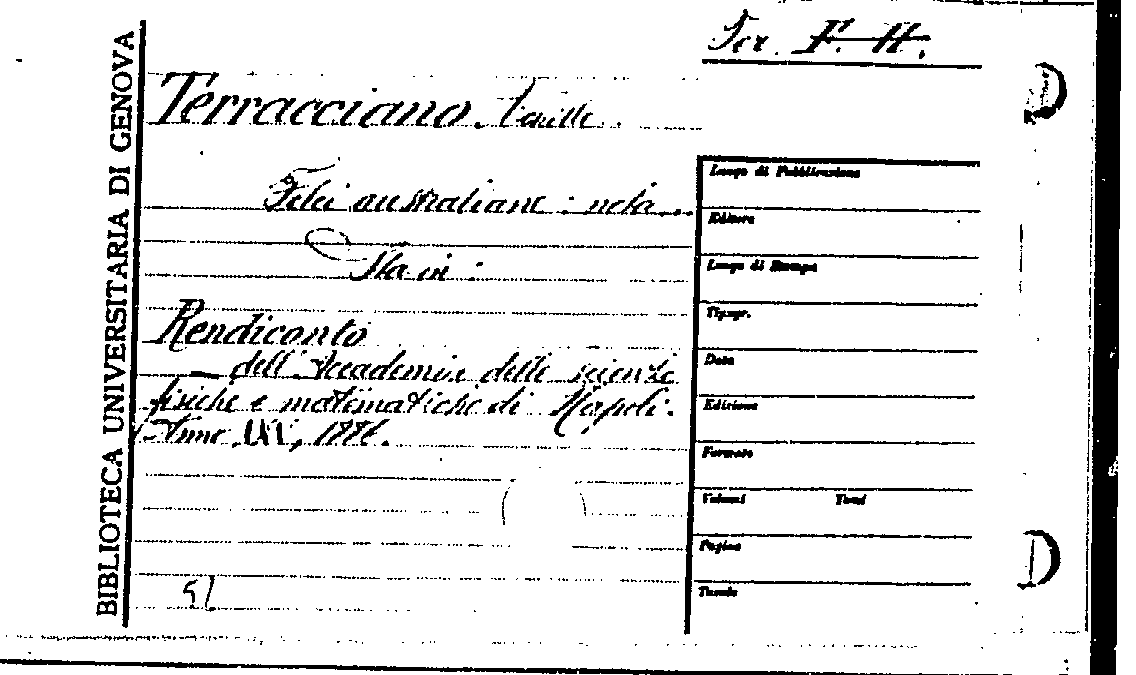 Ter. F. H.
BIBLIOTECA UNIVERSITARIA DI GENOVA
Terracciano Achille
Felci australiane : nota...
Sta in :
Rendiconto
dell'Accademia delle scienze
fisiche e matematiche di Napoli.
Anno XXV, 1886.
Luogo di Pubblicazione
Editore
Luogo di Stampa
Tipogr.
Data
Edizione
Formato
Volumi Tomi
Pagine
Tavole